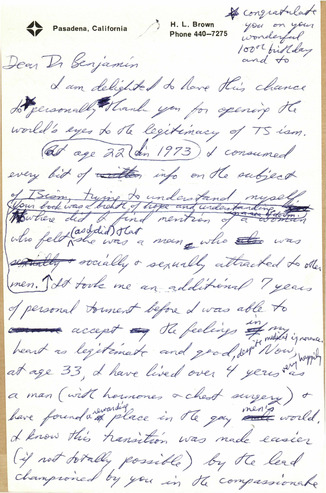 Pasadena, California
H. L. Brown
Phone 440-7275
* congratulate
you on your
wonderful
100th birthday
and to
Dear Dr Benjamin
I am delighted to have this chance
to * personally thank you for opening the
world's eyes to the legitimacy of TSism.
At age 22 (in 1973) I consumed
every bit of info on the subject
of TSism, trying to understand myself
Your book was a breath of hope and understanding
Nowhere did I find mention of a woman
who felt (and did) that she was a man, who was
socially & sexually attracted to other
men. It took me an additional 7 years
of personal torment before I was able to
accept the feelings in my
heart as legitimate and good, despite medical ignorance. Now,
at age 33, I have lived over 4 years very happily as
a man (with hormones & chest surgery) &
have found a rewarding place in the gay men's world.
I know this transition was made easier
(if not totally possible) by the lead
championed by you in the compassionate